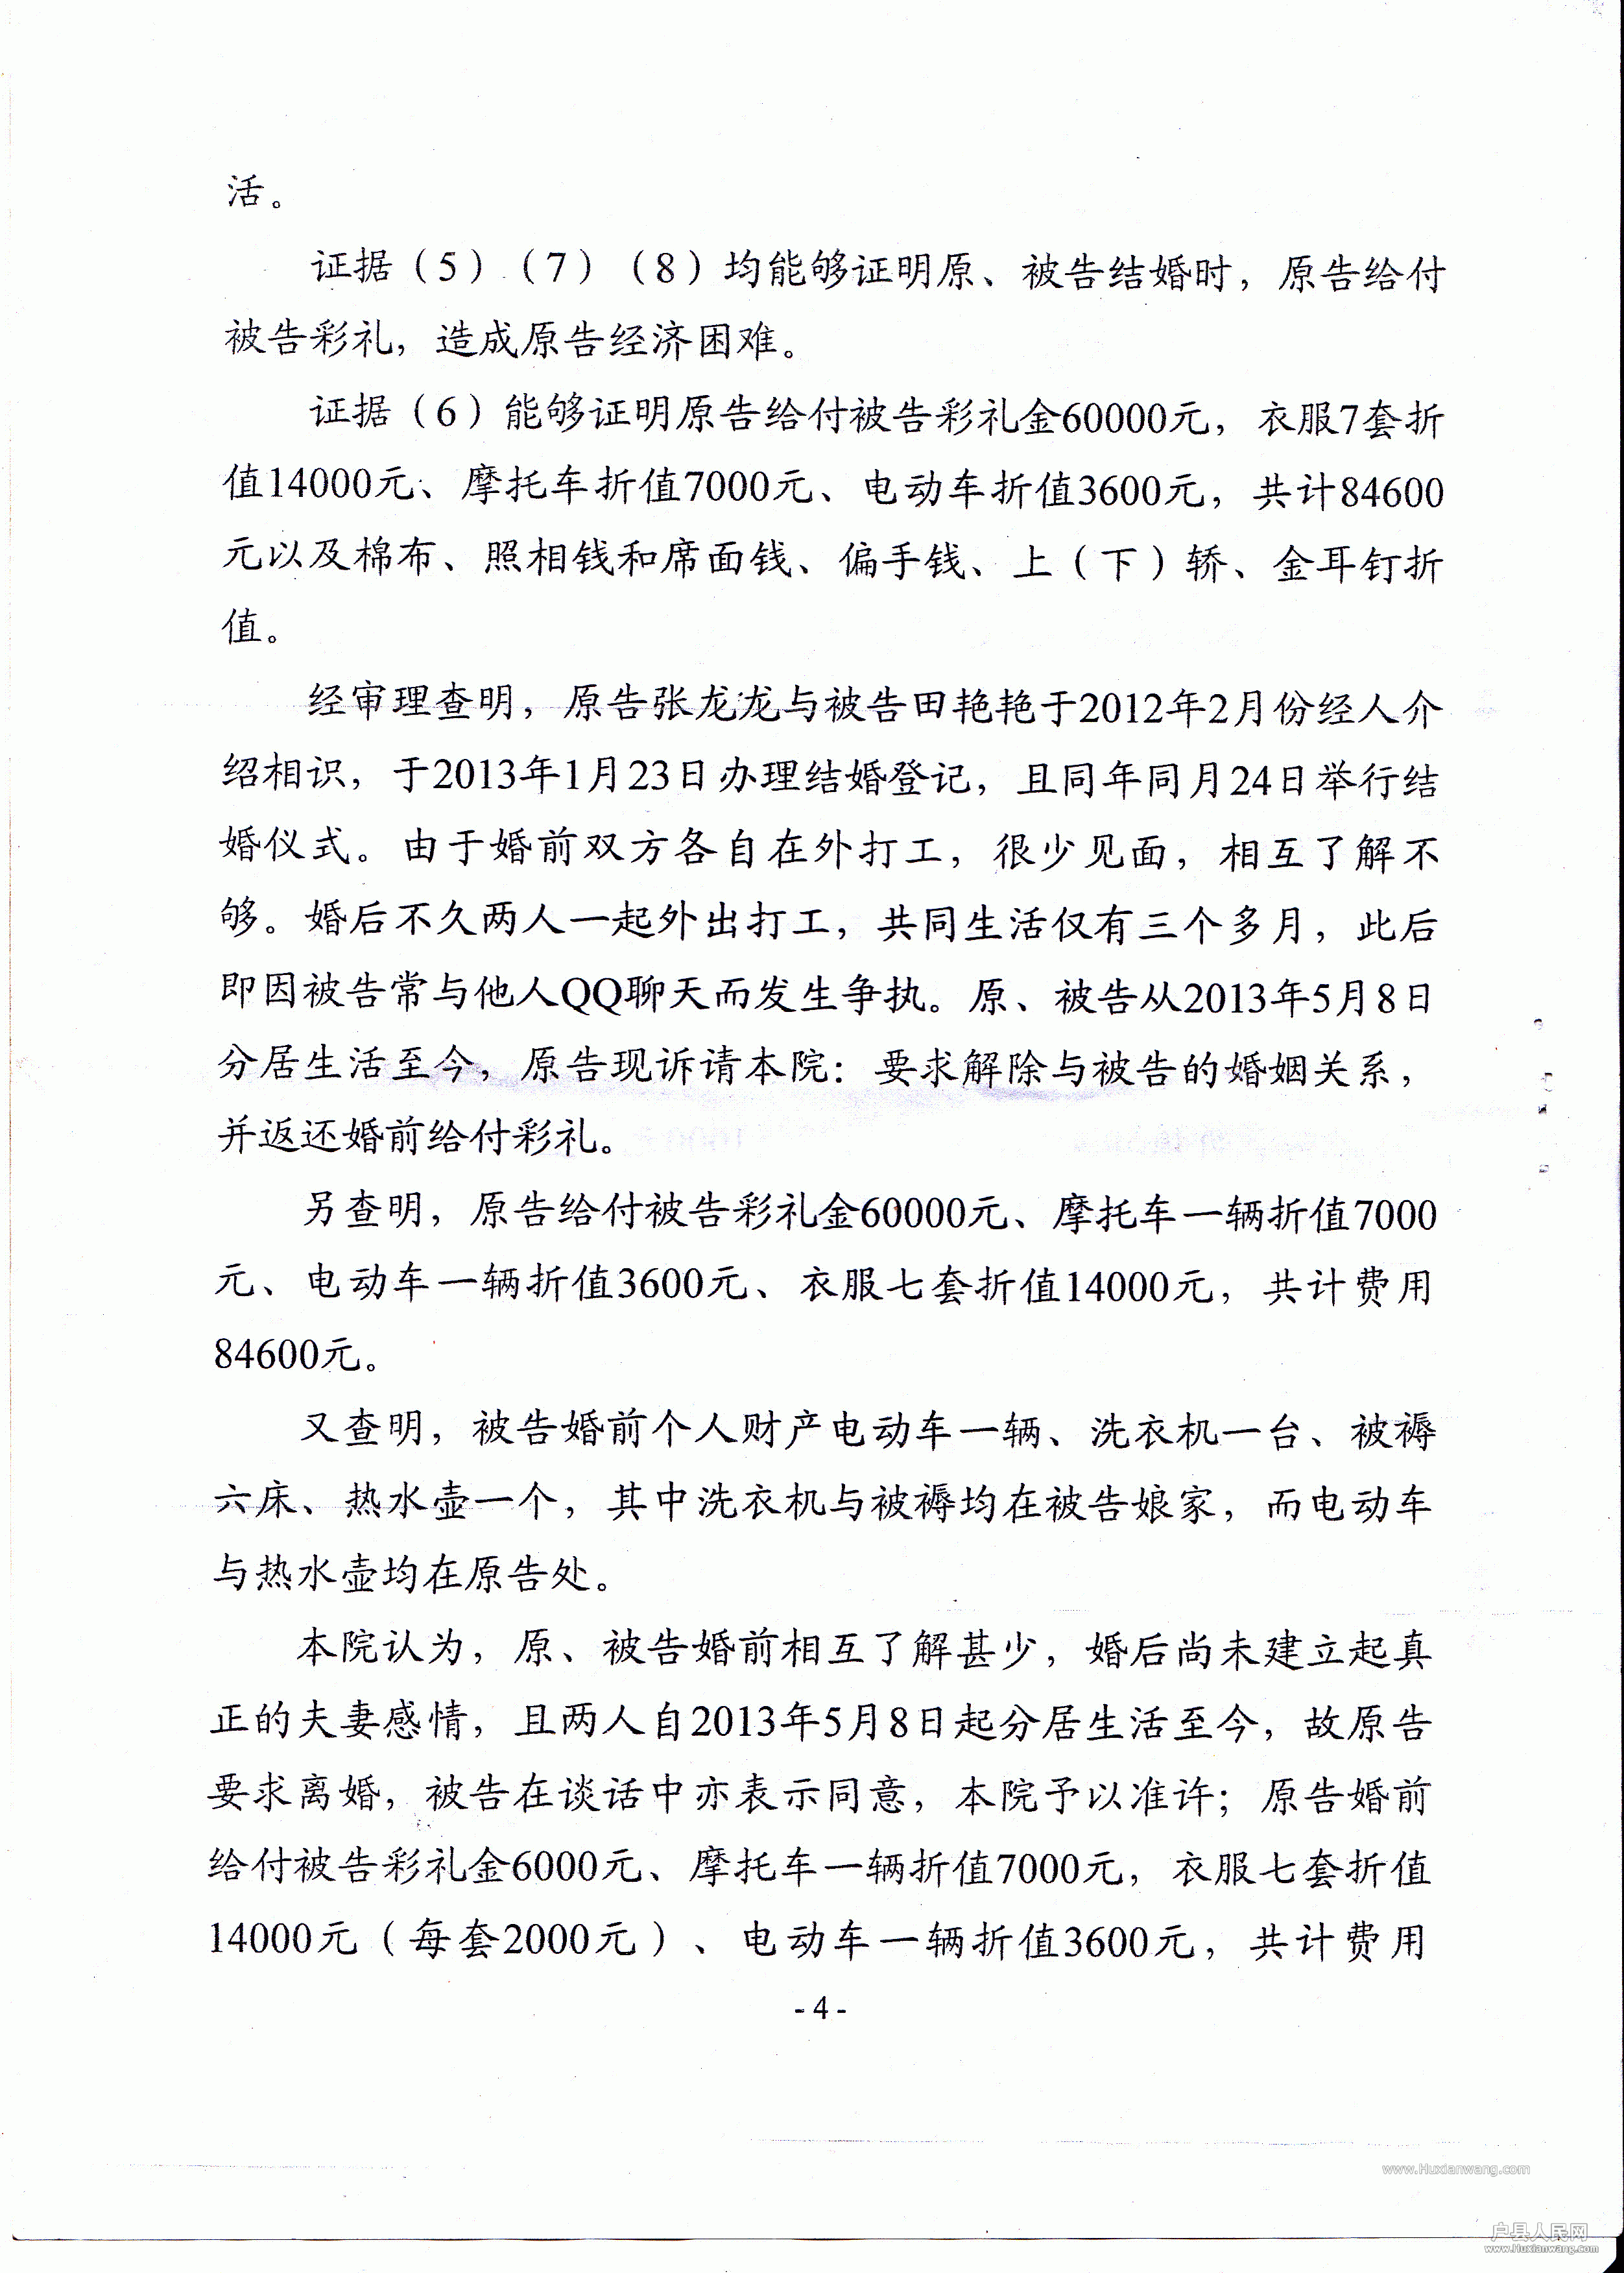 活。
证据（5）（7）（8）均能够证明原、被告结婚时，原告给付
被告彩礼，造成原告经济困难。
证据（6）能够证明原告给付被告彩礼金60000元，衣服7套折
值14000元、摩托车折值7000元、电动车折值3600元，共计84600
元以及棉布、照相钱和席面钱、偏手钱、上（下）轿、金耳钉折
值。
经审理查明，原告张龙龙与被告田艳艳于2012年2月份经人介
绍相识，于2013年1月23日办理结婚登记，且同年同月24日举行结
婚仪式。由于婚前双方各自在外打工，很少见面，相互了解不
够。婚后不久两人一起外出打工，共同生活仅有三个多月，此后
即因被告常与他人QQ聊天而发生争执。原、被告从2013年5月8日
分居生活至今，原告现诉请本院：要求解除与被告的婚姻关系，
并返还婚前给付彩礼。
另查明，原告给付被告彩礼金60000元、摩托车一辆折值7000
元、电动车一辆折值3600元、衣服七套折值14000元，共计费用
84600元。
又查明，被告婚前个人财产电动车一辆、洗衣机一台、被褥
六床、热水壶一个，其中洗衣机与被褥均在被告娘家，而电动车
与热水壶均在原告处。
本院认为，原、被告婚前相互了解甚少，婚后尚未建立起真
正的夫妻感情，且两人自2013年5月8日起分居生活至今，故原告
要求离婚，被告在谈话中亦表示同意，本院予以准许；原告婚前
给付被告彩礼金6000元、摩托车一辆折值7000元，衣服七套折值
14000元（每套2000元）、电动车一辆折值3600元，共计费用
- 4 -
www.Huxianwang.com
户县人民网
www.Huxianwang.com